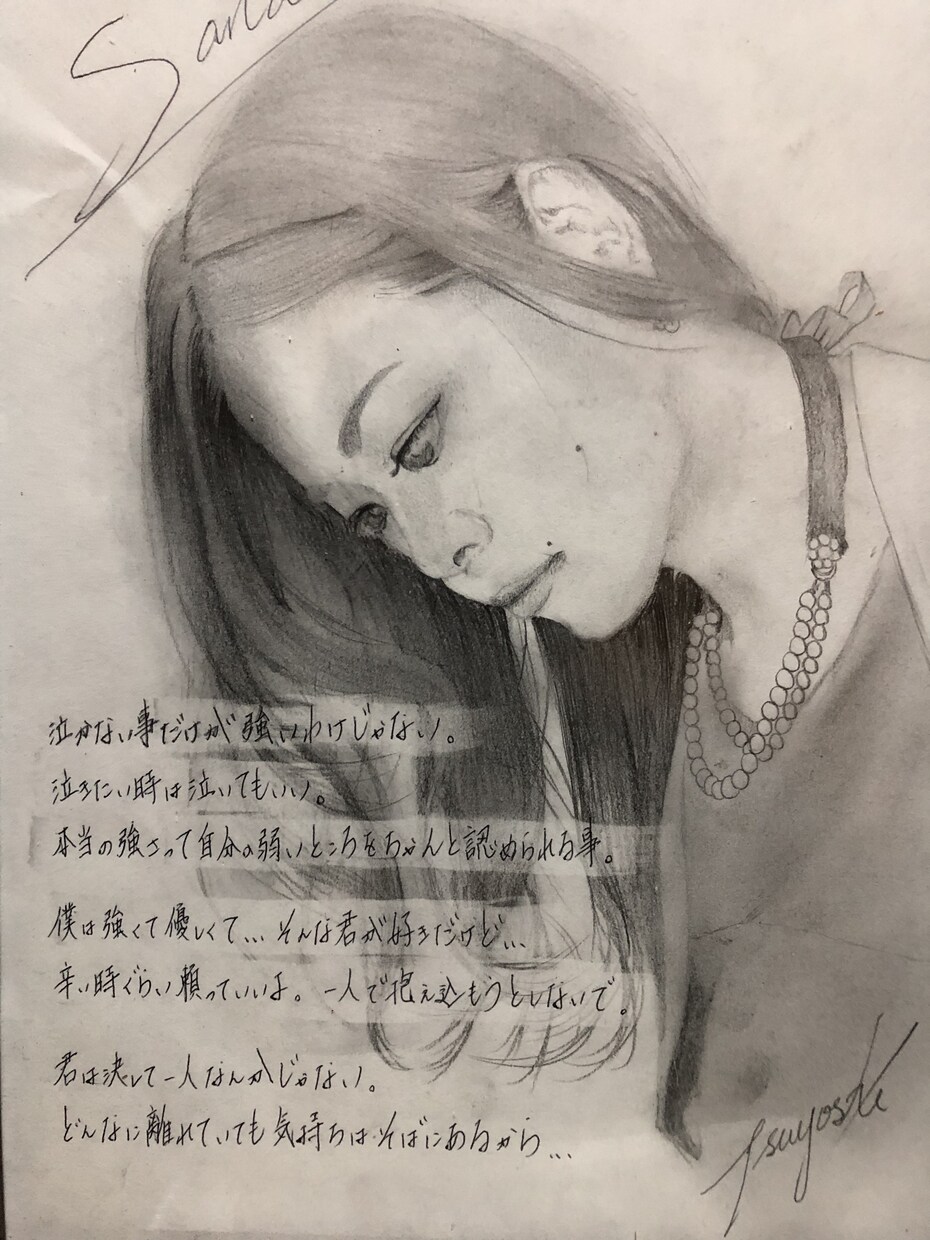 泣かない事だけが強いわけじゃない。
泣きたい時は泣いてもいい。
本当の強さって自分の弱いところをちゃんと認められる事。
僕は強くて優しくて...そんな君が好きだけど...
辛い時ぐらい頼っていいよ。一人で抱え込もうとしないで。
君は決して一人なんかじゃない。
どんなに離れていても気持ちはそばにあるから...